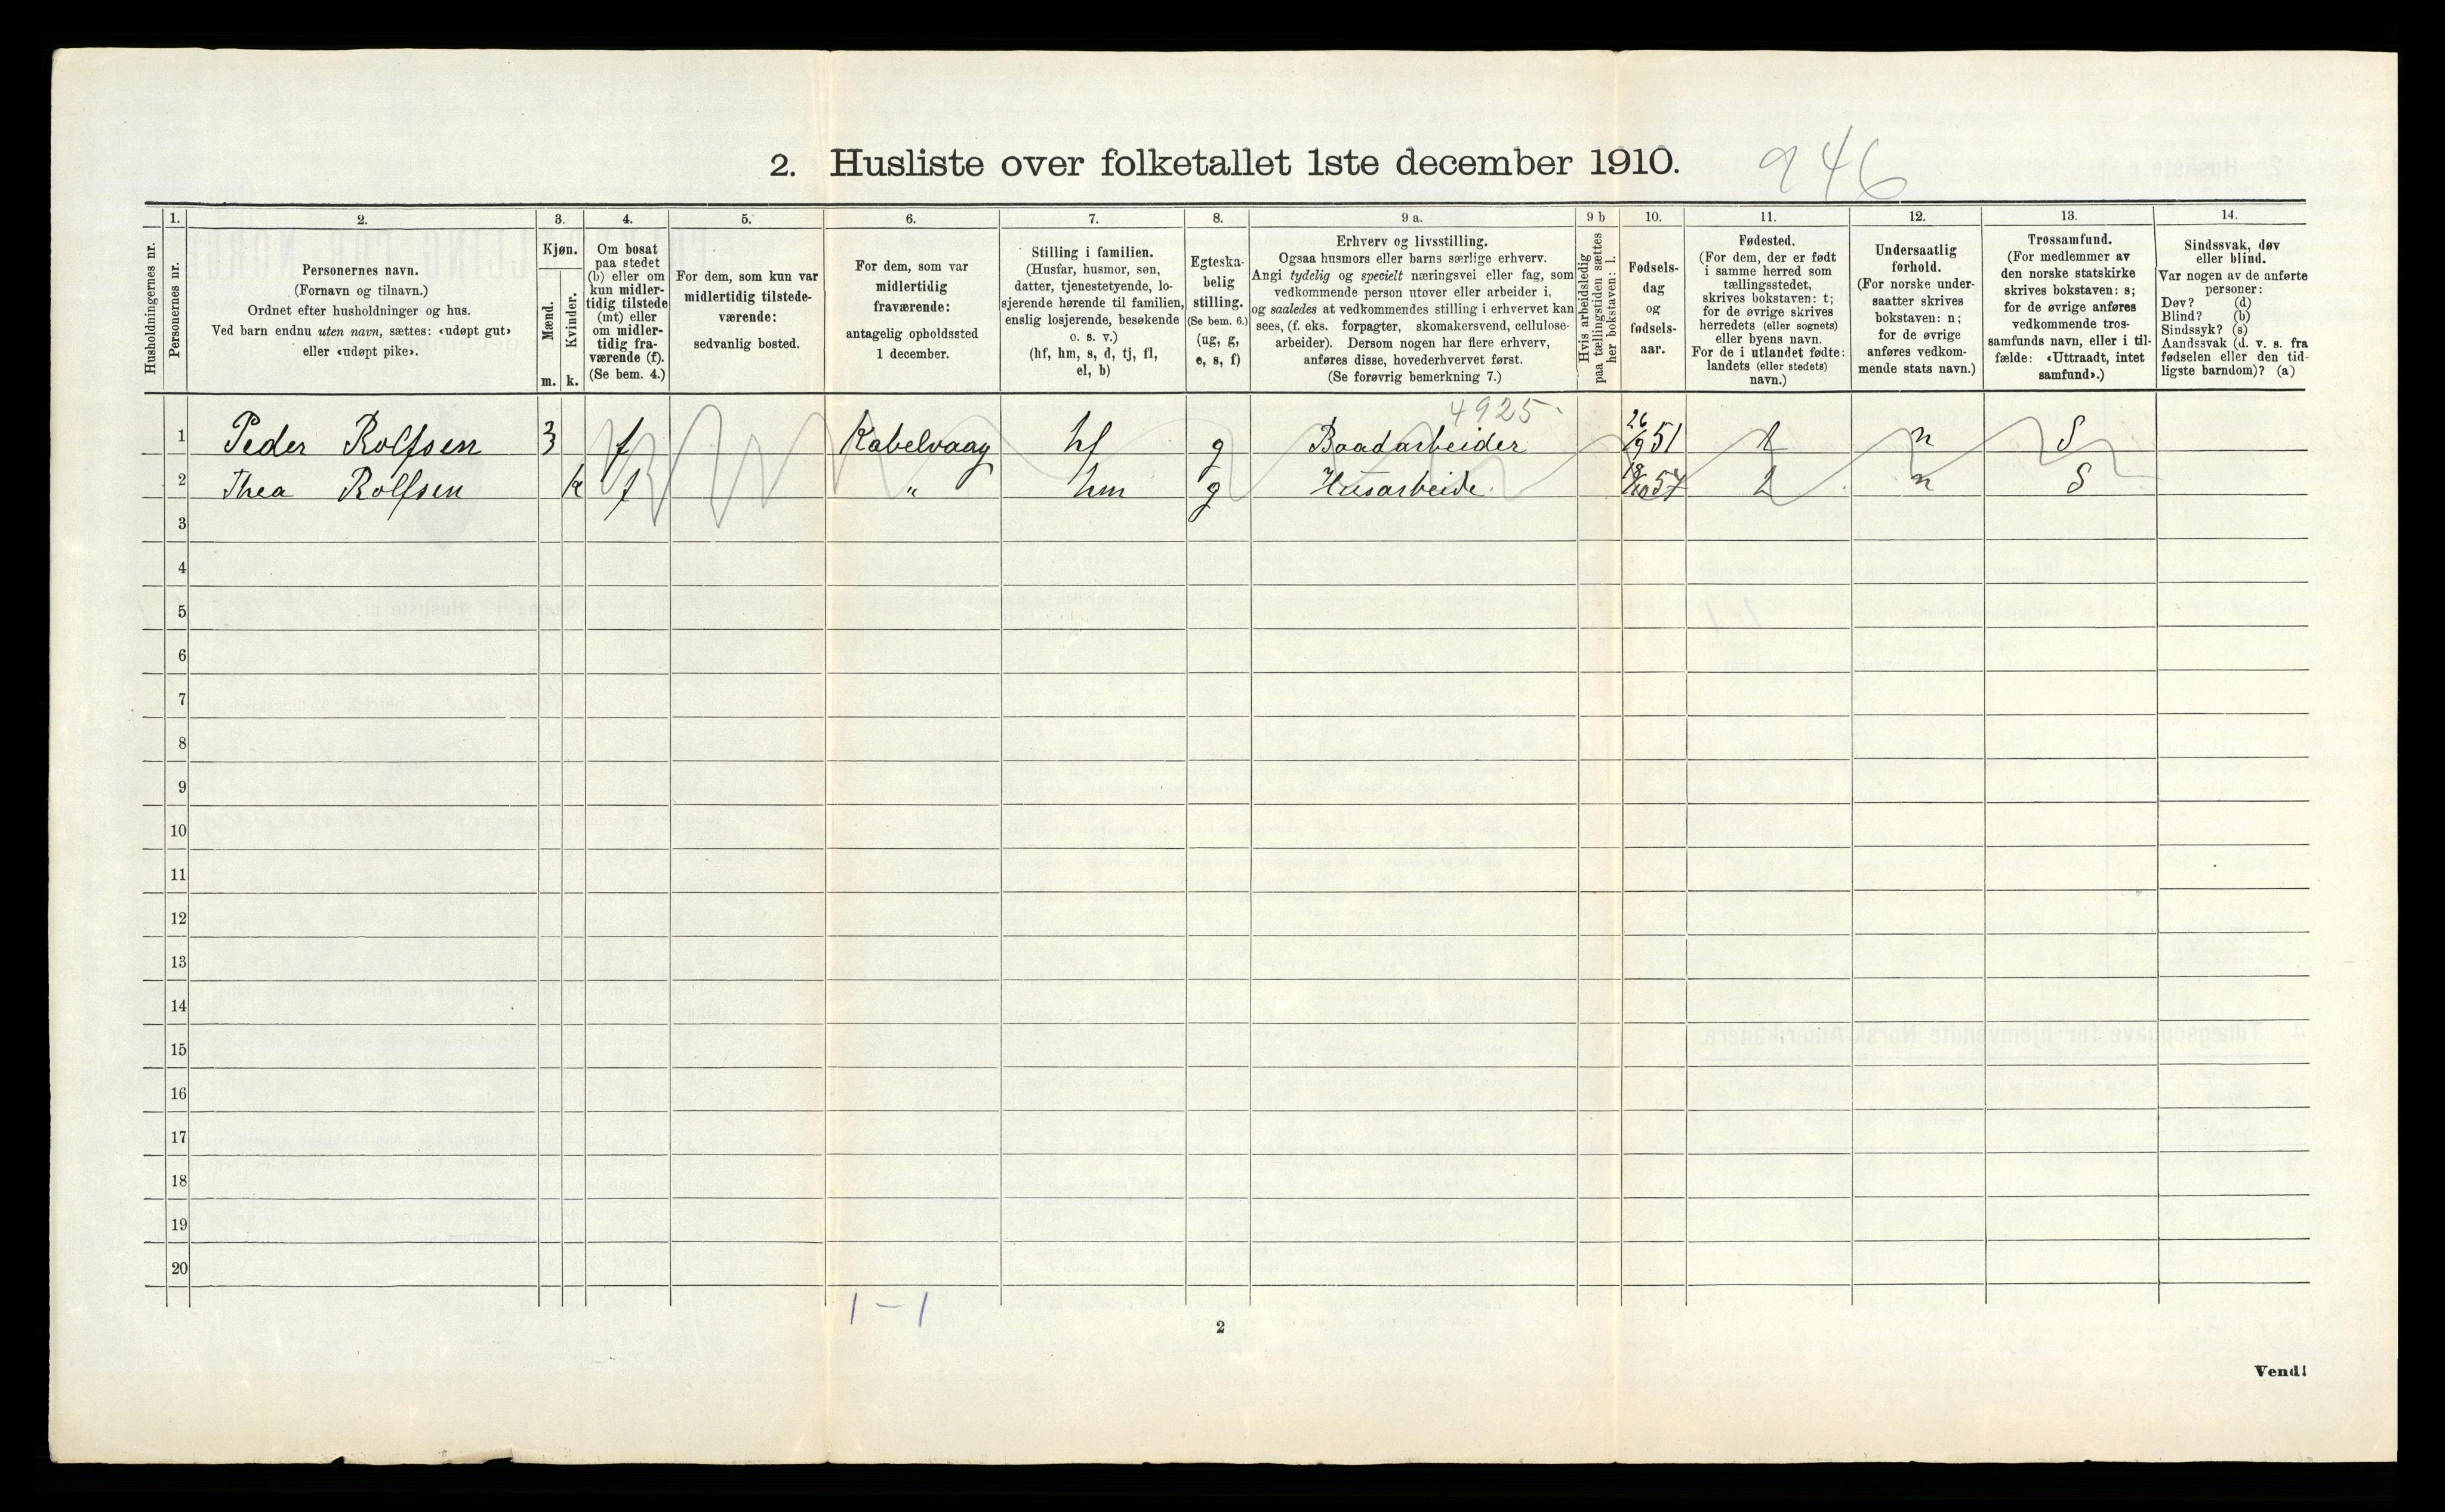 2. Husliste over folketallet 1ste december 1910.
946
1. 2. 3. 4. 5. 6. 7. 8. 9 a. 9 b 10. 11. 12. 13. 14.
Husholdningernes nr.
Personernes nr.
Personernes navn.
(Fornavn og tilnavn.)
Ordnet efter husholdninger og hus.
Ved barn endnu uten navn, sættes: «udøpt gut»
eller «udøpt pike».
Kjøn.
Mænd.
Kvinder.
m. k.
Om bosat
paa stedet
(b) eller om
kun midler-
tidig tilstede
(mt) eller
om midler-
tidig fra-
værende (f).
(Se bem. 4.)
For dem, som kun var
midlertidig tilstede-
værende:
sedvanlig bosted.
For dem, som var
midlertidig
fraværende:
antagelig opholdssted
1 december.
Stilling i familien.
(Husfar, husmor, søn,
datter, tjenestetyende, lo-
sjerende hørende til familien,
enslig losjerende, besøkende
o. s. v.)
(hf, hm, s, d, tj, fl,
el, b)
Egteska-
belig
stilling.
(Se bem. 6.)
(ug, g,
e, s, f)
Erhverv og livsstilling.
Ogsaa husmors eller barns særlige erhverv.
Angi tydelig og specielt næringsvei eller fag, som
vedkommende person utøver eller arbeider i,
og saaledes at vedkommendes stilling i erhvervet kan
sees, (f. eks. forpagter, skomakersvend, cellulose-
arbeider). Dersom nogen har flere erhverv,
anføres disse, hovederhvervet først.
(Se forøvrig bemerkning 7.)
Hvis arbeidsledig
paa tællingstiden sættes
her bokstaven: l.
Fødsels-
dag
og
fødsels-
aar.
Fødested.
(For dem, der er født
i samme herred som
tællingsstedet,
skrives bokstaven: t;
for de øvrige skrives
herredets (eller sognets)
eller byens navn.
For de i utlandet fødte:
landets (eller stedets)
navn.)
Undersaatlig
forhold.
(For norske under-
saatter skrives
bokstaven: n;
for de øvrige
anføres vedkom-
mende stats navn.)
Trossamfund.
(For medlemmer av
den norske statskirke
skrives bokstaven: s;
for de øvrige anføres
vedkommende tros-
samfunds navn, eller i til-
fælde: «Uttraadt, intet
samfund».)
Sindssvak, døv
eller blind.
Var nogen av de anførte
personer:
Døv? (d)
Blind? (b)
Sindssyk? (s)
Aandssvak (d. v. s. fra
fødselen eller den tid-
ligste barndom)? (a)
4925
1 Peder Rolfsen f Kabelvaag hf g Baadarbeider 26/9 51 t n S
2 Thea Rolfsen k f " hm g Husarbeide. 57 t n S
3
4
5
6
7
8
9
10
11
12
13
14
15
16
17
18
19
20
1 - 1
2
Vend!